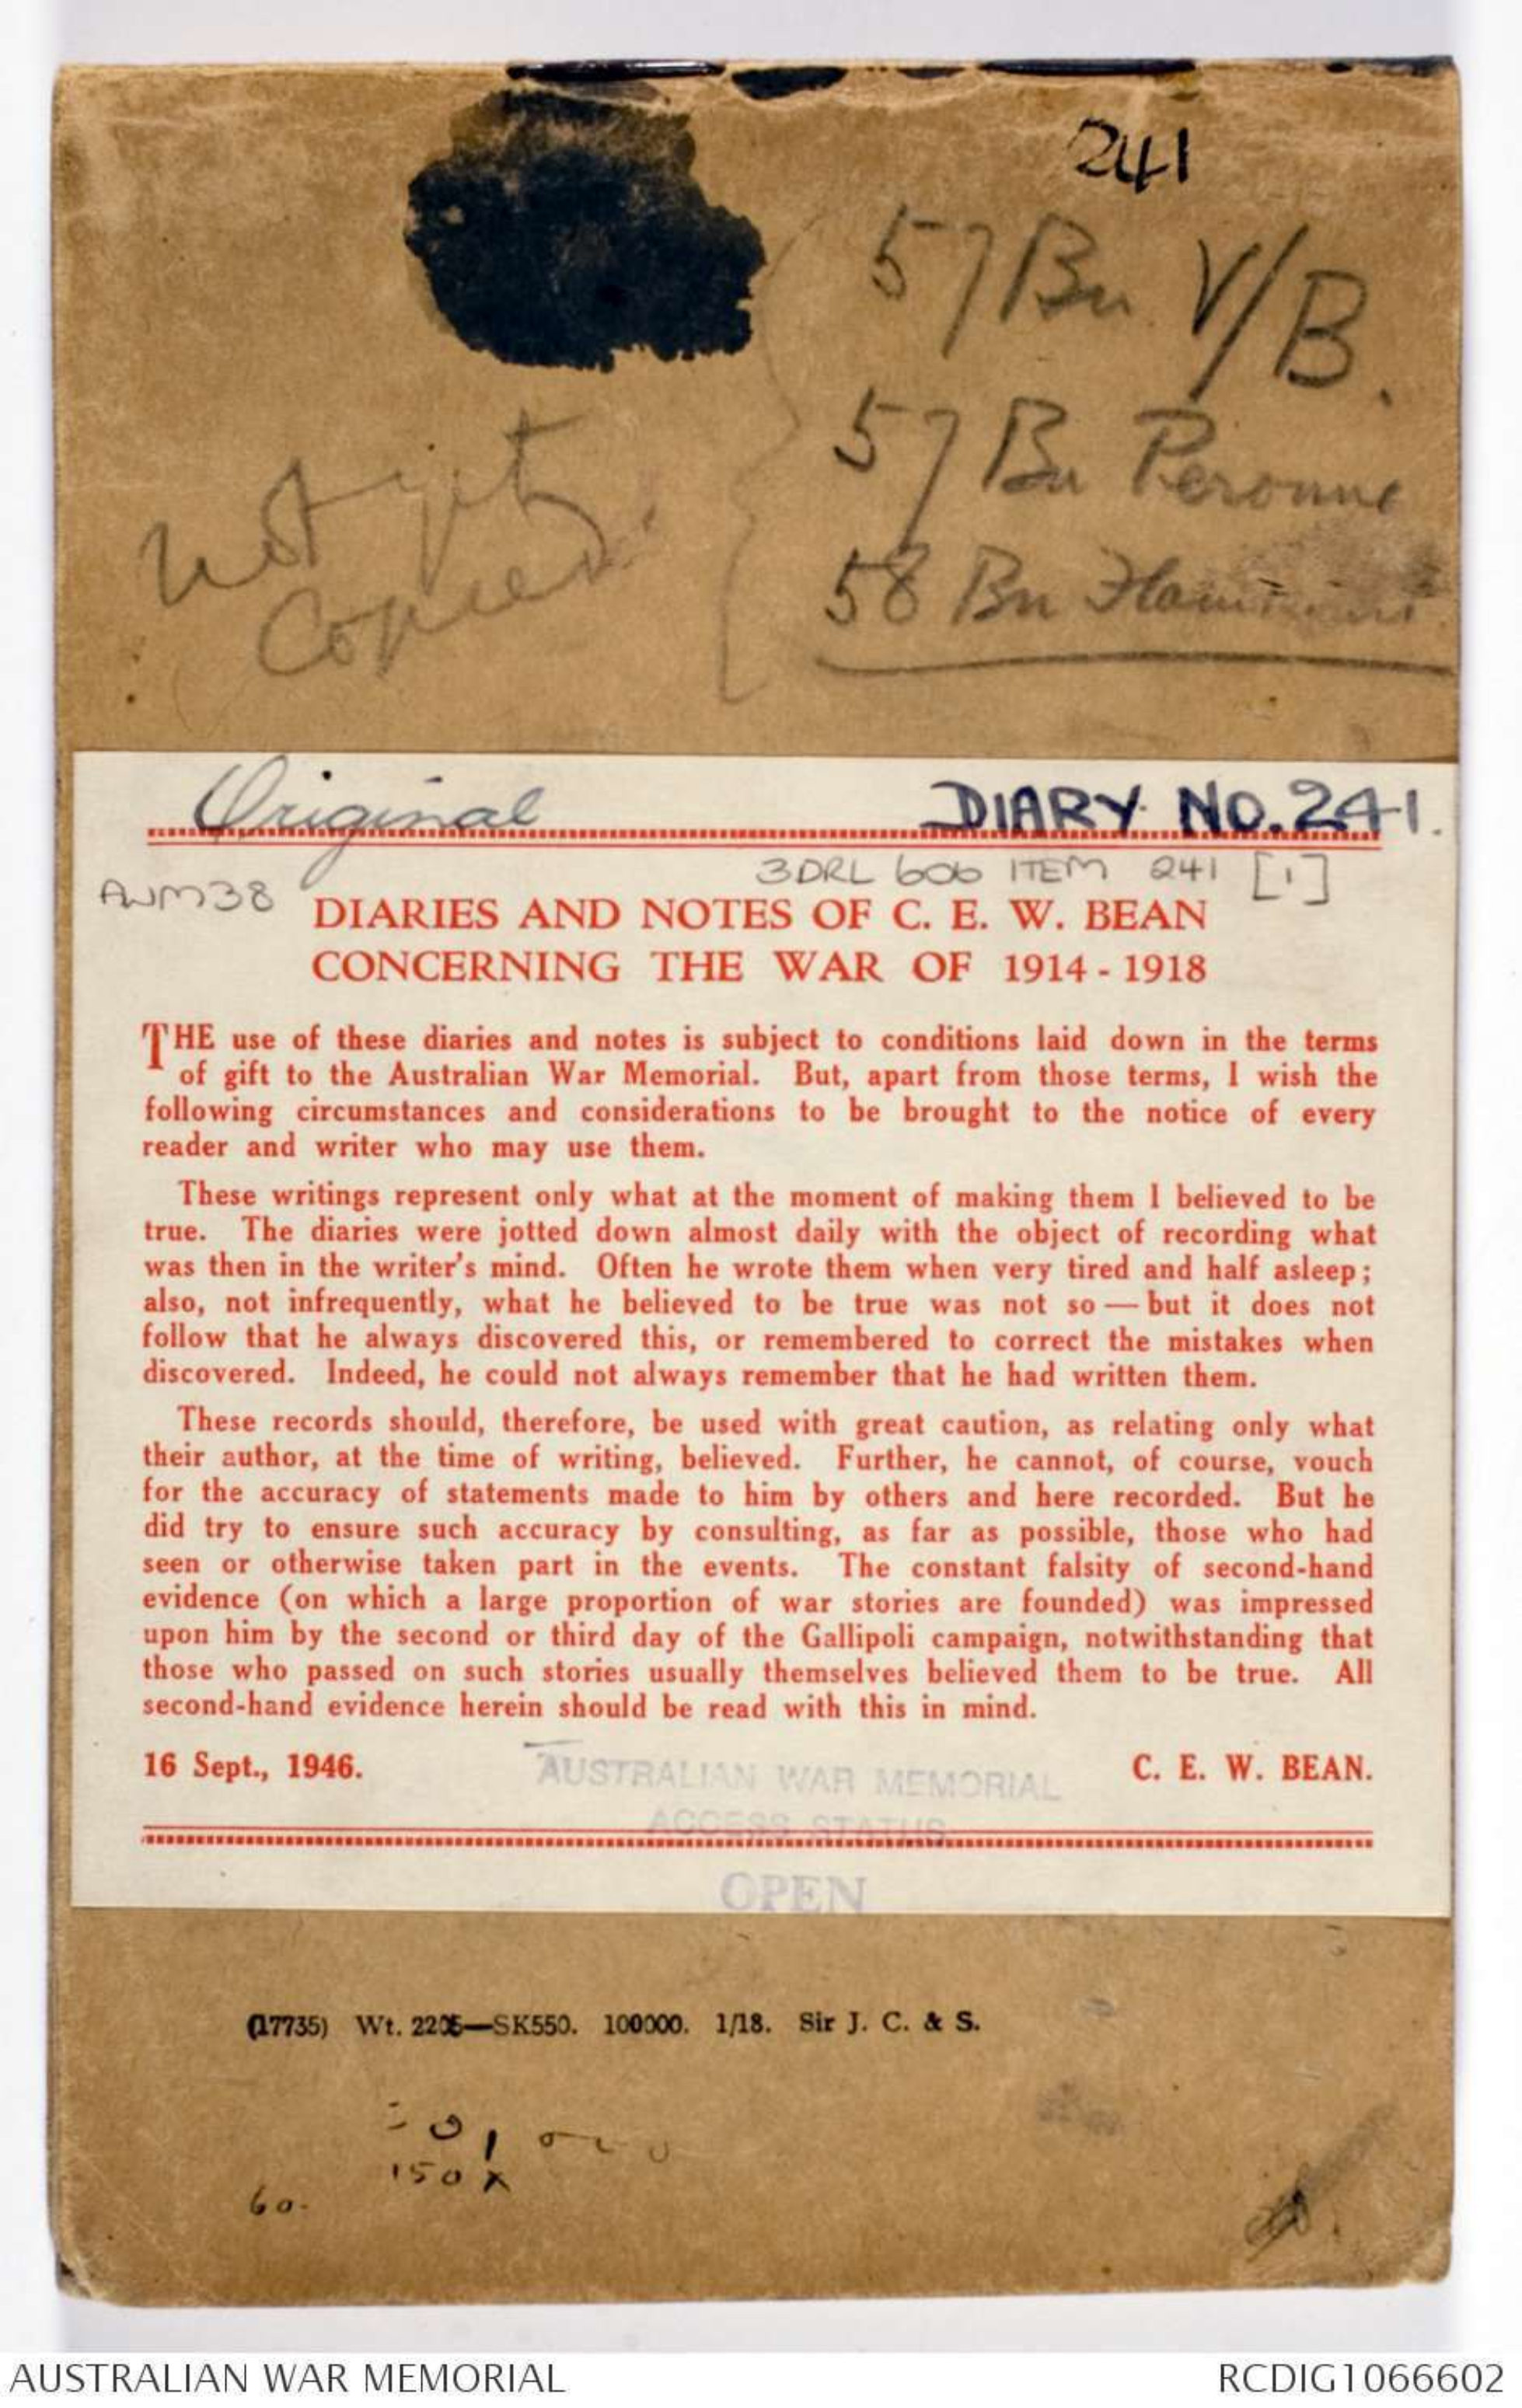 241
57 Bn V/B.
57 Bn Peronne
58 Bn
not yet
copied
Original
DIARY NO. 241.
3DRL 606 ITEM 241 [1]
AWM38
DIARIES AND NOTES OF C. E. W. BEAN
CONCERNING THE WAR OF 1914 - 1918
THE use of these diaries and notes is subject to conditions laid down in the terms
of gift to the Australian War Memorial. But, apart from those terms, I wish the
following circumstances and considerations to be brought to the notice of every
reader and writer who may use them.
These writings represent only what at the moment of making them I believed to be
true. The diaries were jotted down almost daily with the object of recording what
was then in the writer's mind. Often he wrote them when very tired and half asleep;
also, not infrequently, what he believed to be true was not so — but it does not
follow that he always discovered this, or remembered to correct the mistakes when
discovered. Indeed, he could not always remember that he had written them.
These records should, therefore, be used with great caution, as relating only what
their author, at the time of writing, believed. Further, he cannot, of course, vouch
for the accuracy of statements made to him by others and here recorded. But he
did try to ensure such accuracy by consulting, as far as possible, those who had
seen or otherwise taken part in the events. The constant falsity of second-hand
evidence (on which a large proportion of war stories are founded) was impressed
upon him by the second or third day of the Gallipoli campaign, notwithstanding that
those who passed on such stories usually themselves believed them to be true. All
second-hand evidence herein should be read with this in mind.
16 Sept., 1946.
C. E. W. BEAN.
AUSTRALIAN WAR MEMORIAL
ACCESS STATUS
OPEN
(17735) Wt. 2205—SK550. 100000. 1/18. Sir J. C. & S.
150 x
60.
AUSTRALIAN WAR MEMORIAL
RCDIG1066602